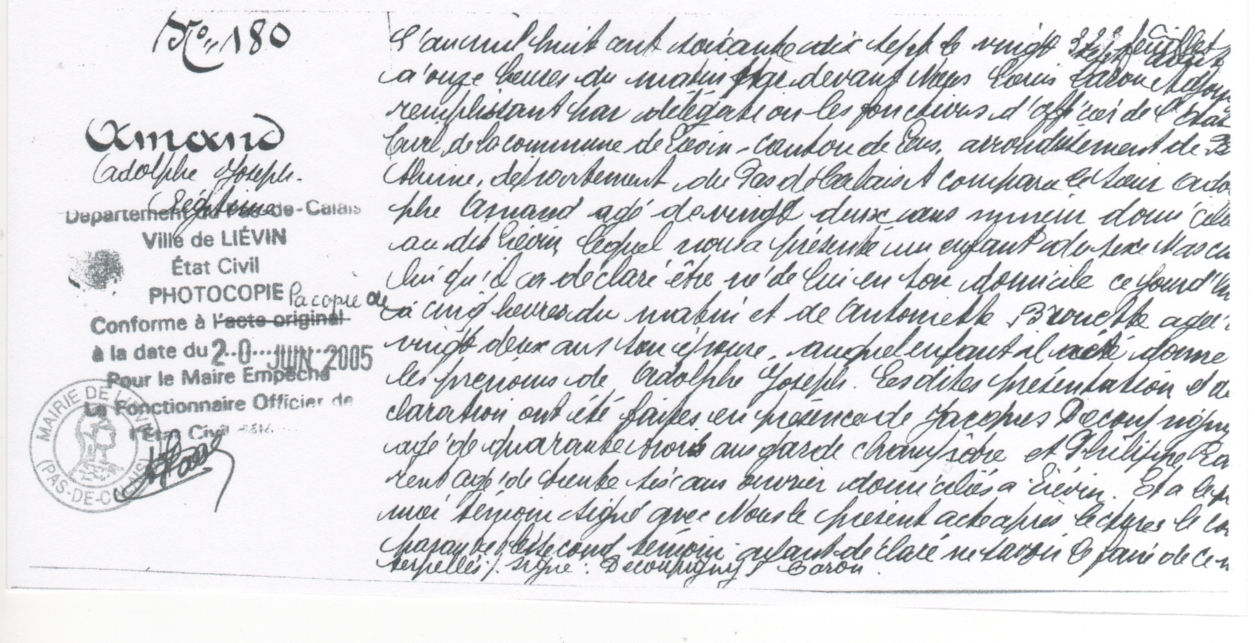 No. 180
Amand
Adolphe Joseph.
Légitime
Département du Pas-de-Calais
Ville de LIÉVIN
État Civil
PHOTOCOPIE la copie de
Conforme à l'acte original
à la date du 20 JUIN 2005
Pour le Maire Empêché
Le Fonctionnaire Officier de
l'État Civil
MAIRIE DE LIÉVIN
(PAS-DE-CALAIS)
L'an mil huit cent soixante dix sept le vingt
à onze heures du matin Par devant Nous Louis Caron Adjoin
remplissant par délégation les fonctions d'officier de l'état
Civil de la commune de Liévin, canton de Lens, arrondissement de B
thune, département du Pas de Calais A comparu le sieur Adol
phe Amand agé de vingt deux ans mineur domicilié
au dit Liévin, lequel nous a présenté un enfant du sexe Mascu
lin qu'il a déclaré être né de lui en son domicile ce jourd'hu
à cinq heures du matin et de Antoinette Brouette agée
vingt deux ans son épouse, auquel enfant il a été donné
les prénoms de Adolphe Joseph. Lesdites présentation et dé
claration ont été faites en présence de Jacques Decoupigny
agé de quarante trois ans garde champêtre et Philippe
rent agé de trente six ans ouvrier domiciliés à Liévin. Et a le pre
mier témoin signé avec Nous le présent acte après lecture le com
parant et le second témoin ayant déclaré ne savoir le faire de ce in
terpellés /. Signé : Decoupigny & Caron.